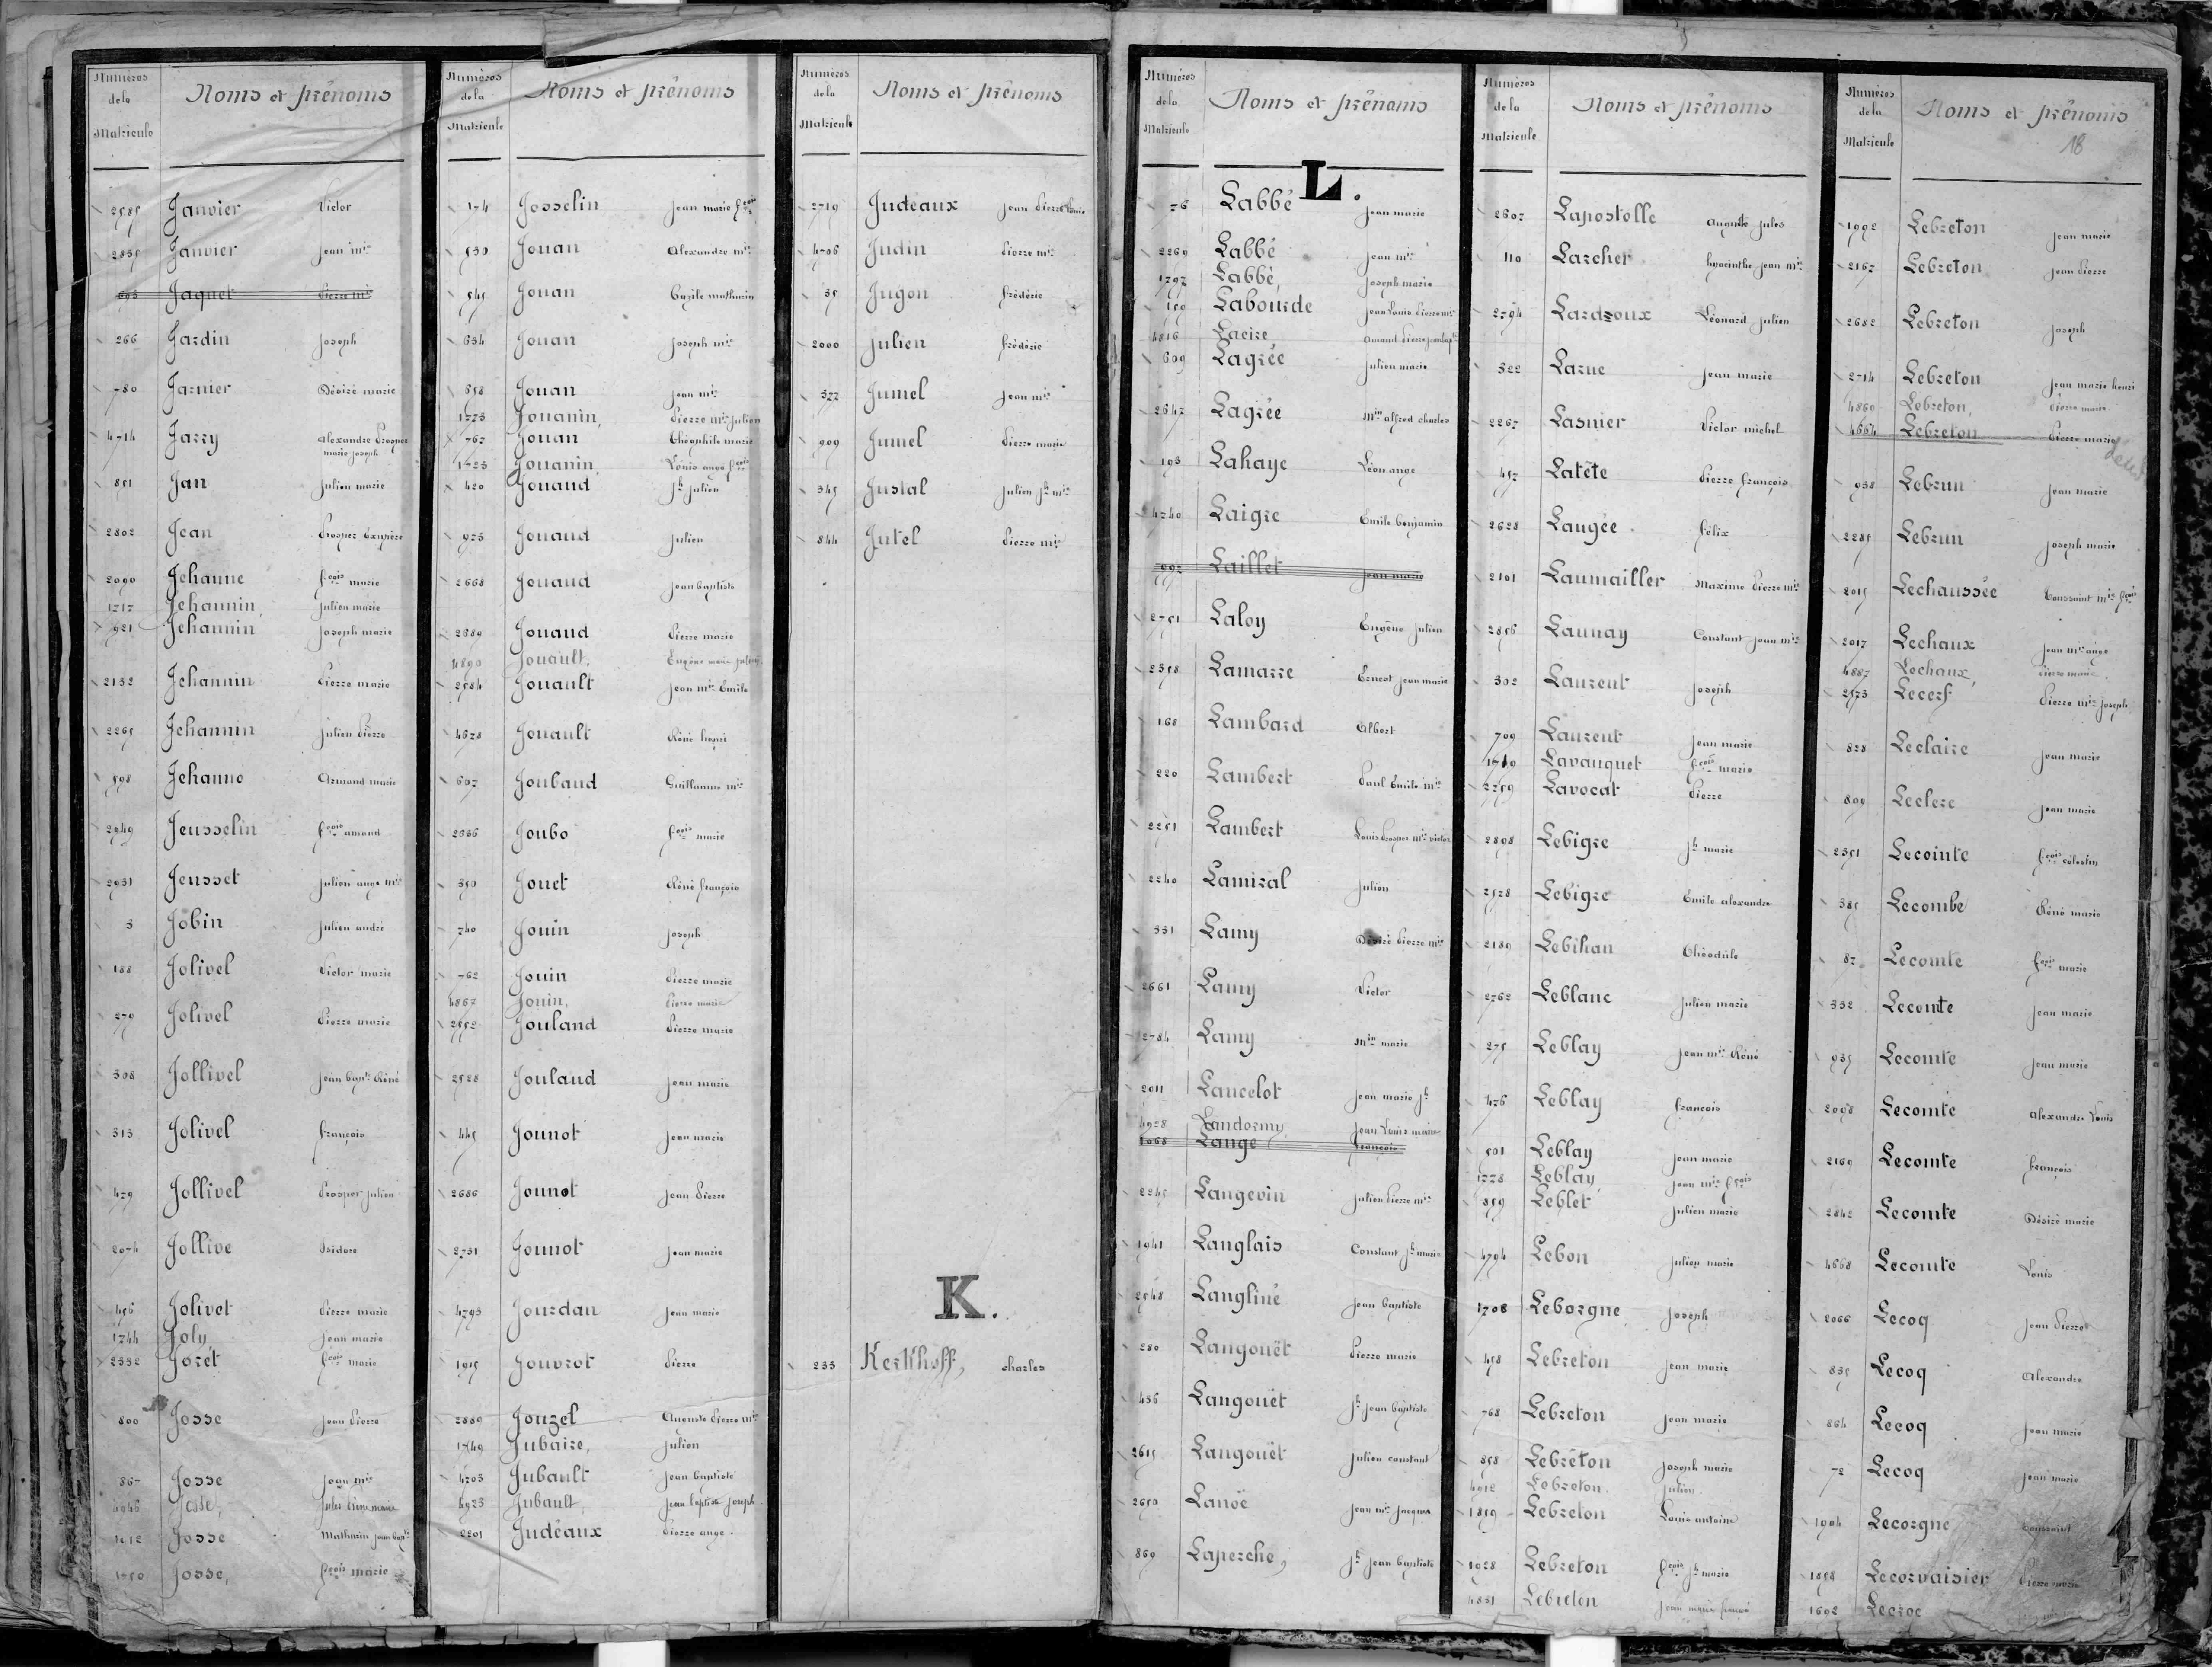 Numéros de la Matricule Noms et prénoms
Janvier Victor
Janvier Jean mie
Jaquet Pierre mie
266 Jardin Joseph
780 Jarnier Désiré marie
4714 Jarry Alexandre Prosper
marie joseph
851 Jan Julien marie
2802 Jean Prosper Exupère
2090 Jehanne fçois marie
1717 Jehannin, Julien marie
921 Jehannin Joseph marie
2132 Jehannin Pierre marie
2265 Jehannin Julien Pierre
598 Jehanno Armand marie
2949 Jeusselin fçois amand
2931 Jeusset Julien ange mie
3 Jobin Julien andré
188 Jolivel Victor marie
279 Jolivel Pierre marie
308 Jollivel Jean bapte Réné
313 Jolivel françois
479 Jollivel Prosper Julien
2074 Jollive Isidore
456 Jolivet Pierre marie
1744 Joly, Jean marie
2332 Jorét fçois marie
800 Josse Jean Pierre
867 Josse Jean mie
Josse, Jules Pierre marie
1612 Josse Mathurin Jean bapte
1750 Josse, fçois marie
Numéros de la Matricule Noms et prénoms
174 Josselin Jean marie fçois
530 Jouan Alexandre mie
545 Jouan Bazile mathurin
634 Jouan Joseph mie
658 Jouan Jean mie
1773 Jouanin, Pierre mie Julien
767 Jouan Théophile marie
1723 Jouanin, Louis ange fçois
420 Jouaud Jh Julien
973 Jouaud Julien
2668 Jouaud Jean baptiste
2689 Jouaud Pierre marie
4890 Jouault, Eugène marie julien
2584 Jouault Jean mie Emile
4678 Jouault Réné henri
607 Joubaud Guillaume mie
2636 Joubo fçois marie
350 Jouet Réné françois
740 Jouin Joseph
762 Jouin Pierre marie
4867 Jouin, Pierre marie
2552 Jouland Pierre marie
2528 Jouland Jean marie
445 Jounot Jean marie
2686 Jounot Jean Pierre
2731 Jounot Jean marie
4793 Jourdan Jean marie
1915 Jouvrot Pierre
2889 Jouzel Auguste Pierre mie
1749 Jubaire, Julien
4703 Jubault Jean baptiste
4923 Jubault, Jean baptiste Joseph
2201 Judéaux Pierre ange
Numéros de la Matricule Noms et prénoms
2719 Judeaux Jean Pierre Louis
4706 Judin Pierre mie
35 Jugon frédéric
2000 Julien frédéric
377 Jumel Jean mie
909 Jumel Pierre marie
345 Justal Julien Jh mie
844 Jutel Pierre mie
K.
233 Kerkhoff, charles
Numéros de la Matricule Noms et prénoms
L.
76 Labbé Jean marie
2269 Labbé Jean mie
1797 Labbé, Joseph marie
159 Labourde Jean Louis Pierre mie
4816 Lacire
609 Lagrée Julien marie
2647 Lagrée min alfred charles
193 Lahaye Léon ange
4740 Laigre Emile benjamin
997 Laillet Jean marie
2751 Laloy Eugène Julien
2358 Lamarre Ernest Jean marie
168 Lambard Albert
220 Lambert Paul Emile mie
2251 Lambert Louis Prosper mie victor
2240 Lamiral Julien
331 Lamy Désiré Pierre mie
2661 Lamy Victor
2784 Lamy min marie
2011 Lancelot Jean marie Jh
4928 Landormy Jean Louis marie
1068 Lange françois
2245 Langevin Julien Pierre mie
1941 Langlais Constant Jh marie
2548 Langliné Jean baptiste
280 Langouët Pierre marie
436 Langouët Jh Jean baptiste
2615 Langouët Julien constant
2650 Lanoë Jean mie Jacques
869 Laperche, Jh Jean baptiste
Numéros de la Matricule Noms et prénoms
2607 Lapostolle Auguste Jules
110 Larcher hyacinthe Jean mie
2794 Lardroux Léonard Julien
322 Larue Jean marie
2267 Lasnier Victor michel
457 Latête Pierre françois
2628 Laugée félix
2101 Laumailler Maxime Pierre mie
2856 Launay Constant Jean mie
302 Laurent Joseph
709 Laurent Jean marie
1719 Lavanquet fçois marie
2259 Lavocat Pierre
2808 Lebigre Jh marie
2528 Lebigre Emile alexandre
2189 Lebihan Théodule
2762 Leblanc Julien marie
275 Leblay Jean mie Réné
476 Leblay françois
501 Leblay Jean marie
1778 Leblay, Jean mie fçois
859 Leblet Julien marie
4794 Lebon Julien marie
1708 Leborgne Joseph
458 Lebreton Jean marie
768 Lebreton Jean marie
858 Lebreton Joseph marie
4912 Lebreton, Julien
1859 Lebreton Louis antoine
1928 Lebreton fçois Jh marie
4831 Lebreton
Numéros de la Matricule Noms et prénoms
18
1992 Lebreton Jean marie
2167 Lebreton Jean Pierre
2682 Lebreton Joseph
2714 Lebreton Jean marie henri
4860 Lebreton, Pierre marie
4664 Lebreton Pierre marie
938 Lebrun Jean marie
2285 Lebrun Joseph marie
2015 Lechaussée Toussaint mie fçois
2017 Lechaux Jean mie ange
4887 Lechaux, Pierre marie
2573 Lecerf Pierre mie Joseph
828 Leclaire Jean marie
809 Leclerc Jean marie
2351 Lecointe fçois célestin
385 Lecombe Réné marie
87 Lecomte fçois marie
332 Lecomte Jean marie
935 Lecomte Jean marie
2098 Lecomte Alexandre Louis
2169 Lecomte françois
2842 Lecomte Désiré marie
4668 Lecomte Louis
2066 Lecoq Jean Pierre
835 Lecoq Alexandre
864 Lecoq Jean marie
72 Lecoq Jean marie
1904 Lecorgne Toussaint
1858 Lecorvaisier Pierre marie
1692 Lecroc